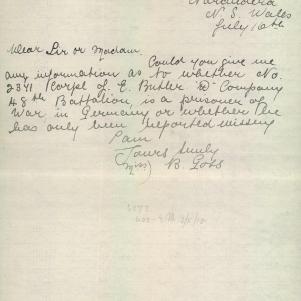 Narandera
N. S. Wales
July 10th
Dear Sir or Madam.
Could you give me
any information as to whether No.
2341 Corpl of E. Butler "D" Company
48th Battalion, is a prisoner of
War, in Germany or whether he
has only been reported missing
I am
Yours truly
(Miss) B.